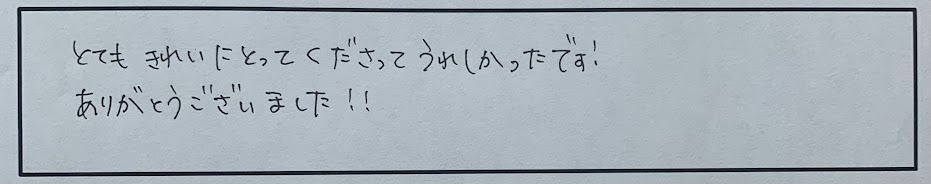 とても きれいにとってくださって うれしかったです!
ありがとうございました!!